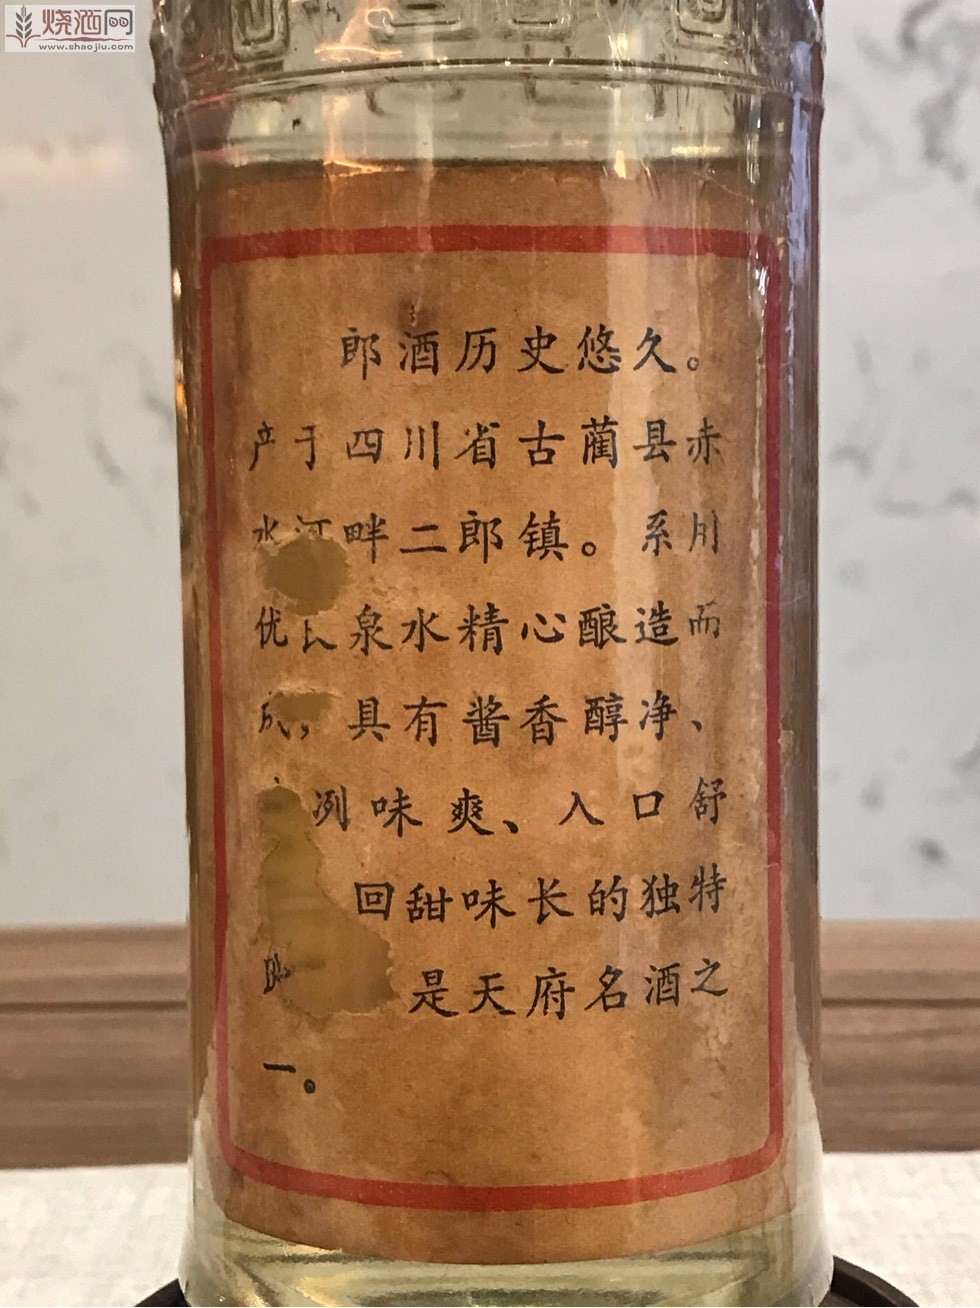 烧酒网
www.shaojiu.com
郎酒历史悠久。
产于四川省古蔺县赤
水河畔二郎镇。系用
优良泉水精心酿造而
成，具有酱香醇净、
冽味爽、入口舒
回甜味长的独特
是天府名酒之
一。